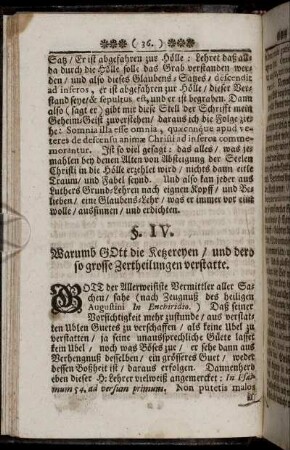 ( 36. )
Satz/ Er ist abgefahren zur Hölle: Lehret daß all-
da durch die Hölle solle das Grab verstanden wer-
den / und also dieses Glaubens-Satzes / descendit
ad inferos, er ist abgefahren zur Hölle / dieser Ver-
stand seye/ & sepultus est, und er ist begraben. Dann
also (sagt er) gibt mir diese Stell der Schrifft mein
Geheim-Geist zuverstehen / daraus ich die Folge zie-
he: Somnia illa esse omnia, quæcunque apud ve-
teres de descensu animæ Christi ad inferos comme-
morantur. Ist so viel gesagt: das alles / was jez-
mahlen bey denen Alten von Absteigung der Seelen
Christi in die Hölle erzehlet wird / nichts dann eitle
Traum / und Fabel seynd. Und also kan jeder aus
Luthers Grund-Lehren nach eignem Kopff / und Be-
lieben / eine Glaubens-Lehr / was er immer vor eine
wolle / aussinnen / und erdichten.
§. IV.
Warumb GOtt die Ketzereyen / und dero
so grosse Zertheilungen verstatte.
GOTT der Allerweisiste Vermittler aller Sa-
chen / sahe (nach Zeugnuß des heiligen
Augustini In Enchiridio.) Daß seiner
Vorsichtigkeit mehr zustunde / aus verstat-
ten Ublen Guetes zu verschaffen / als keine Ubel zu
verstatten / ja seine unaussprechliche Güete lasset
kein Ubel / noch was Böses zu / er sehe dann aus
Verhengnuß desselben / ein grösseres Guet / weder
dessen Boßheit ist / daraus erfolgen. Dannenhero
eben dieser H: Lehrer vielweiß angemercket: In Psal-
mum 54. ad versum primum. Non putetis malos